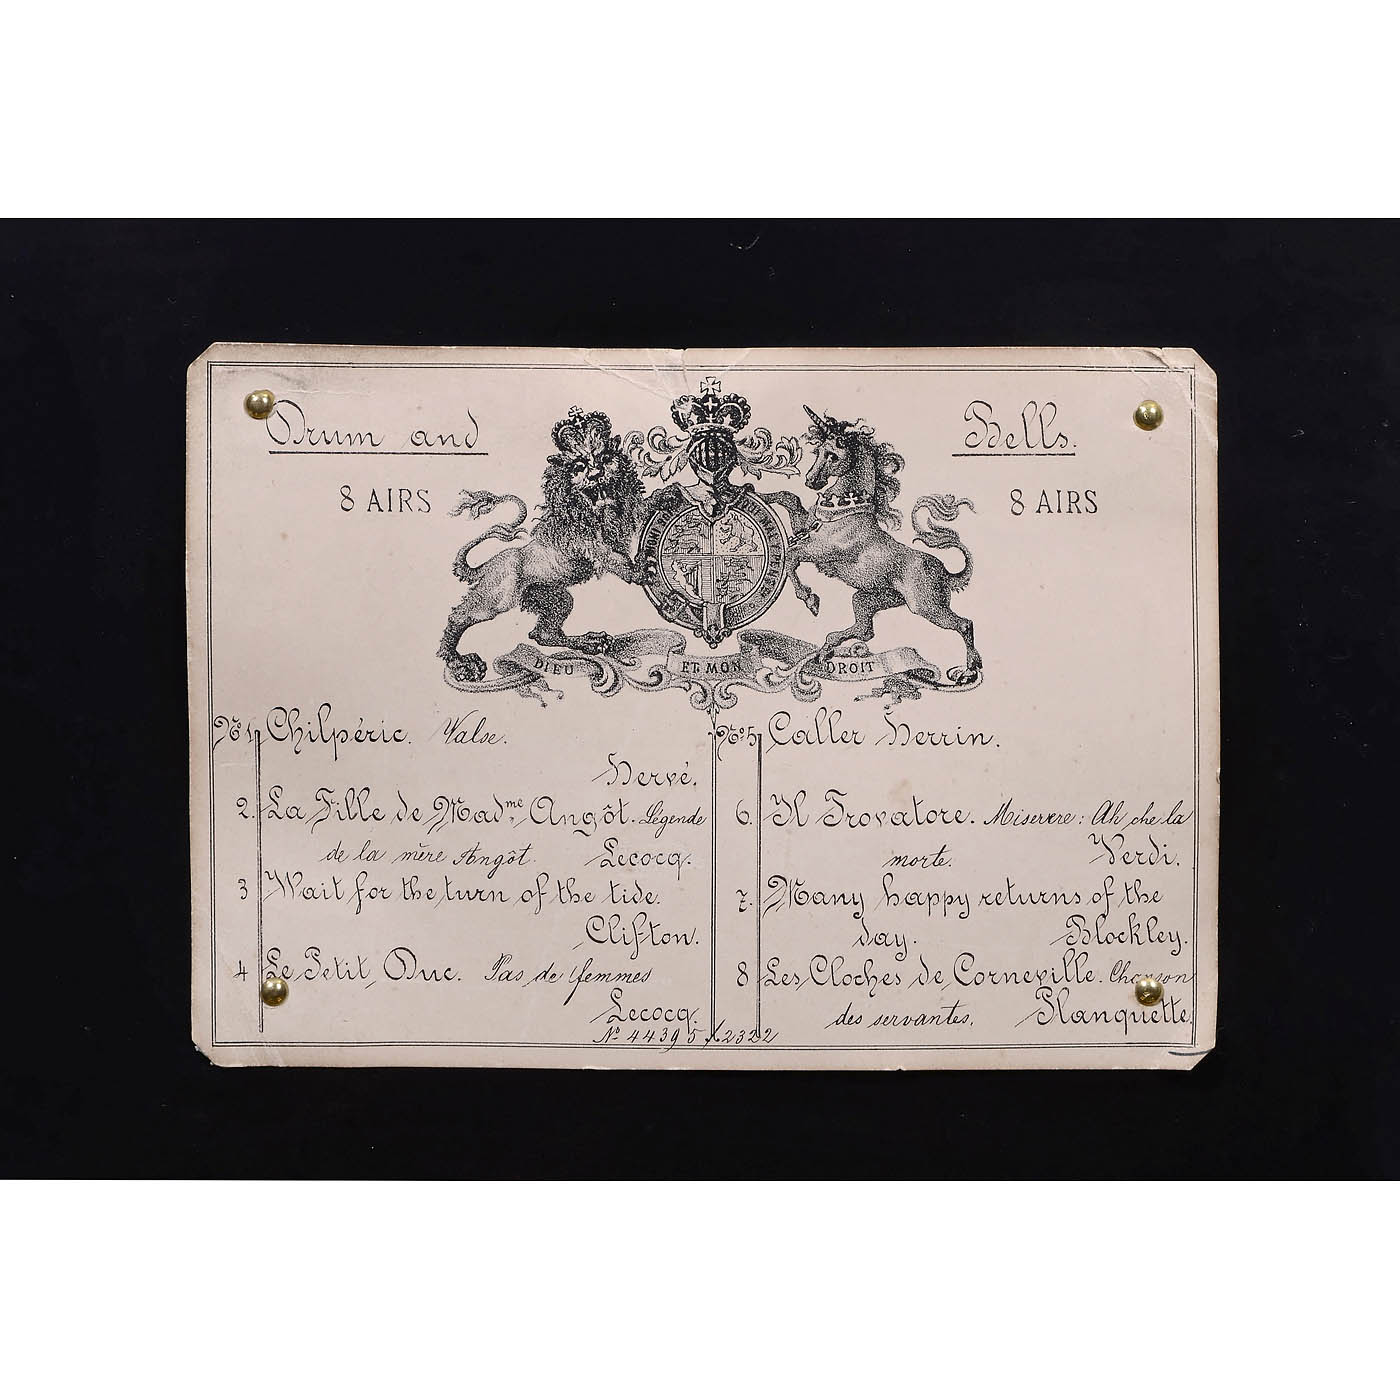 Drum and Bells.
8 AIRS 8 AIRS
DIEU ET MON DROIT
No 1 Chilpéric. Valse.
Hervé.
2. La Fille de Madme Angôt. Légende
de la mère Angôt. Lecocq.
3 Wait for the turn of the tide.
Clifton.
4 Le Petit Duc. Pas de femmes
Lecocq.
No. 5 Caller Herrin.
6. Il Trovatore. Miserere: Ah che la
morte. Verdi.
7. Many happy returns of the
day. Blockley.
8 Les Cloches de Corneville. Chanson
des servantes. Planquette.
No 44395